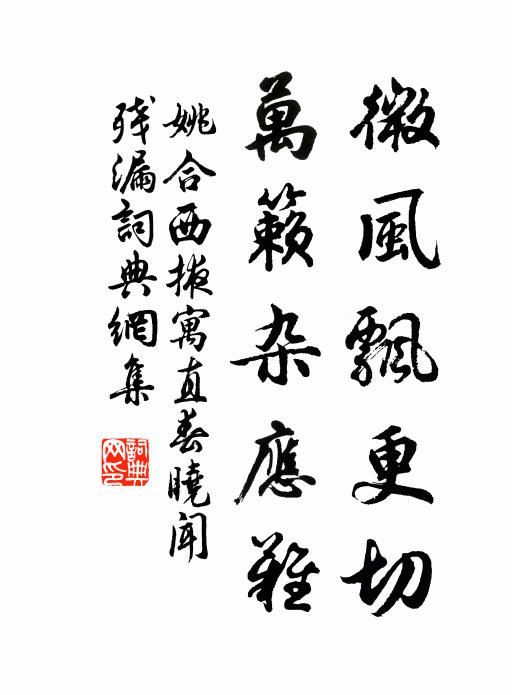 微風飄更切
萬籟杂應難
姚合西掖寓直春曉聞
残漏詞典網集
詞典
网印